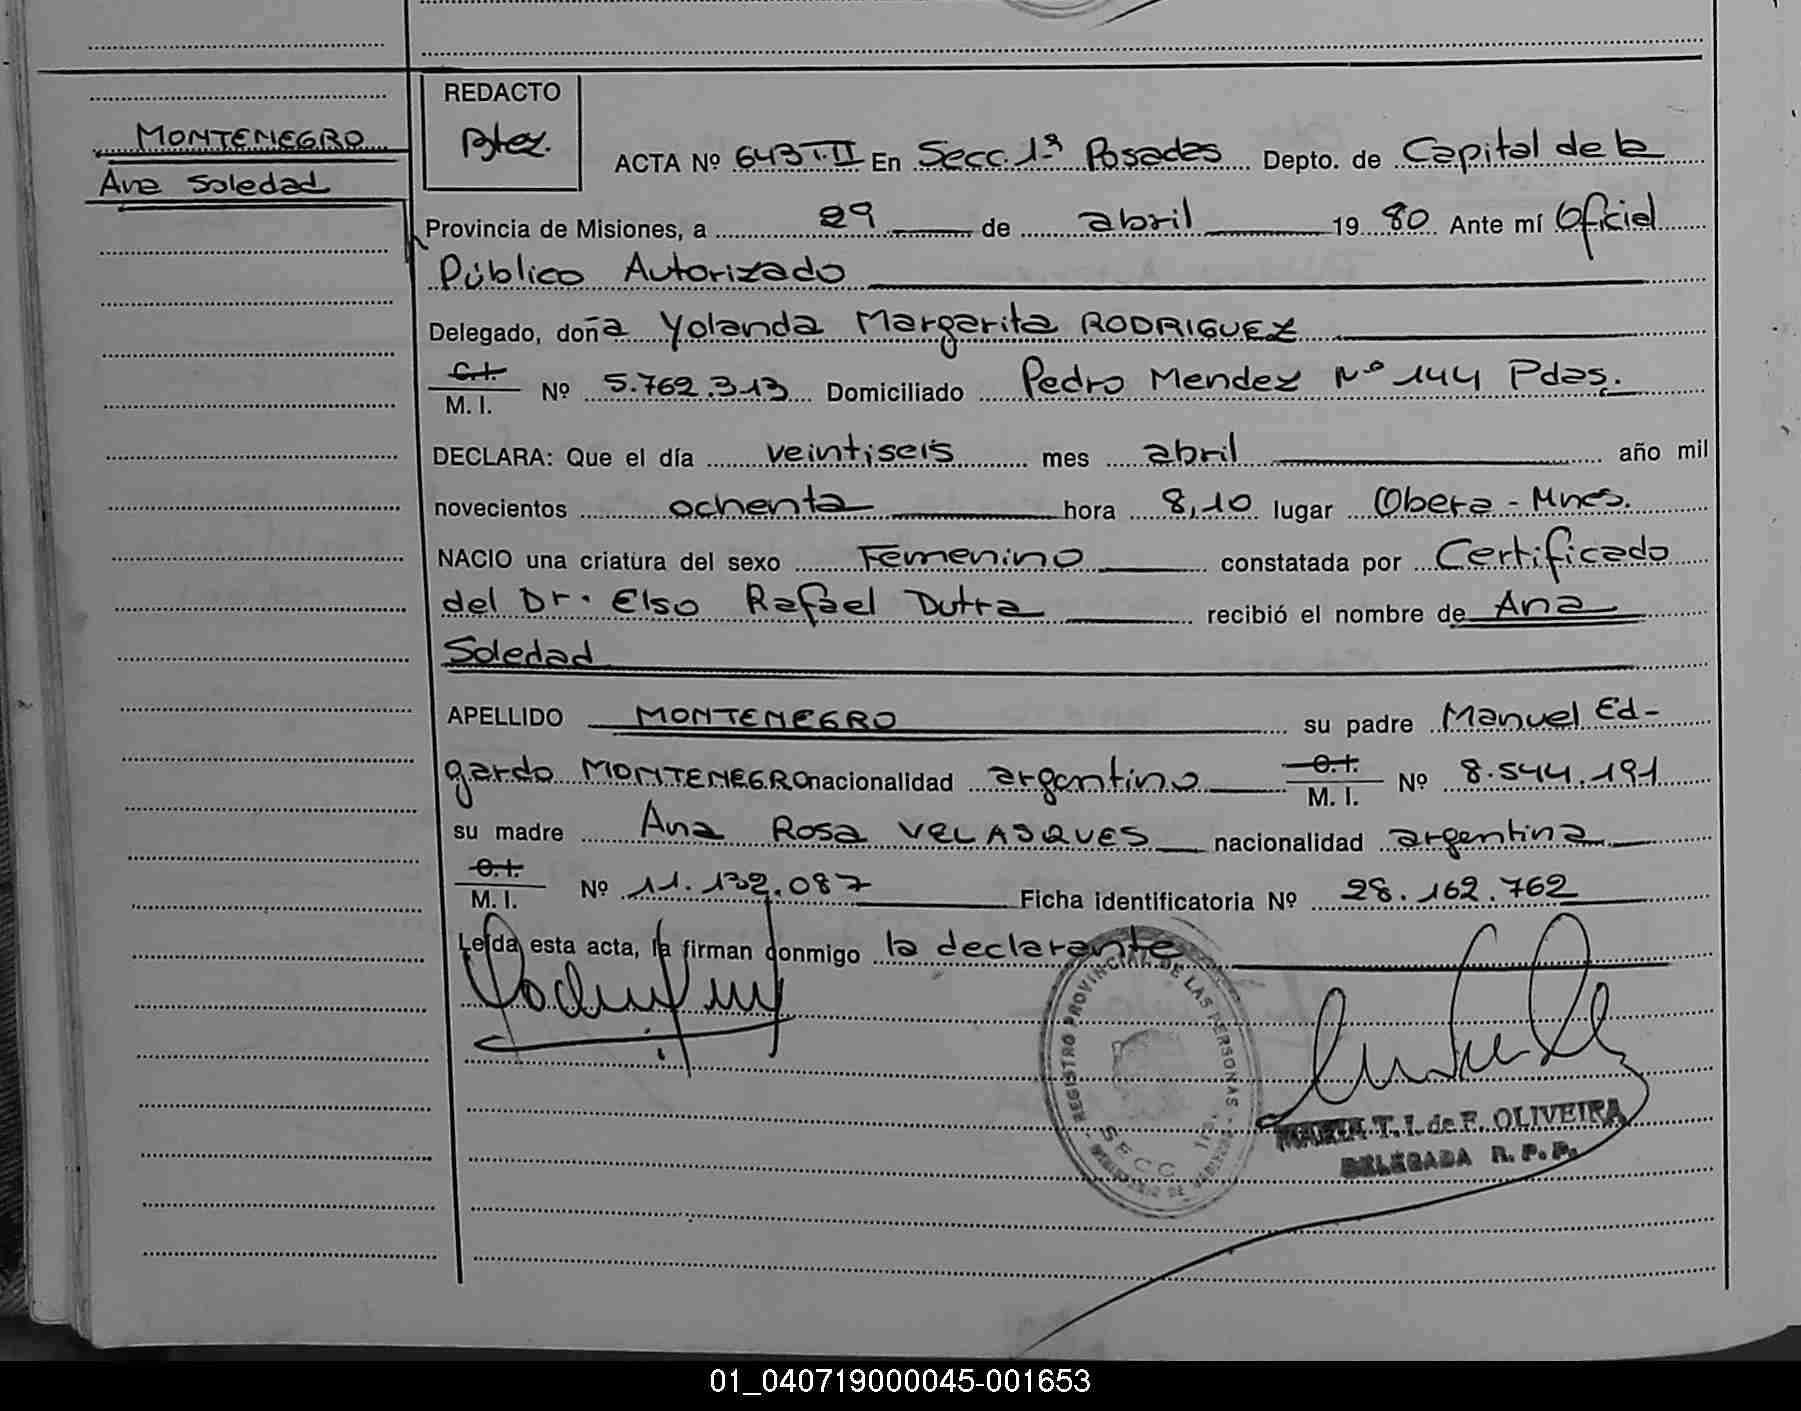 MONTENEGRO
Ana Soledad
REDACTO
Btez.
ACTA Nº 643 T.II En Secc. 1ª Posadas Depto. de Capital de la
Provincia de Misiones, a 29 de abril 19 80 Ante mí Oficial
Público Autorizado
Delegado, doña Yolanda Margarita RODRIGUEZ
C.I.
M. I. Nº 5.762.313 Domiciliado Pedro Mendez Nº 144 Pdas.
DECLARA: Que el día veintiseis mes abril año mil
novecientos ochenta hora 8,10 lugar Obera - Mnes.
NACIO una criatura del sexo Femenino constatada por Certificado
del Dr. Elso Rafael Dutra recibió el nombre de Ana
Soledad
APELLIDO MONTENEGRO su padre Manuel Ed-
gardo MONTENEGRO nacionalidad argentino C.I.
M. I. Nº 8.544.191
su madre Ana Rosa VELASQUES nacionalidad argentina
C.I.
M. I. Nº 11.132.087 Ficha identificatoria Nº 28.162.762
Leída esta acta, la firman conmigo la declarante
REGISTRO PROVINCIAL DE LAS PERSONAS
SECC. 1ra.
MARIA T. I. de F. OLIVEIRA
DELEGADA R. P. P.
01_040719000045-001653